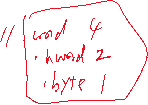 // word 4
. hword 2
. byte 1